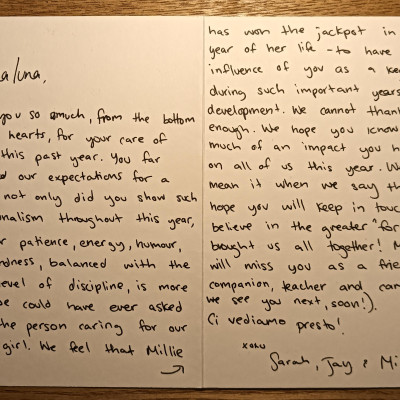 aluna,
you so much, from the bottom
hearts, for your care of
this past year. You far
our expectations for a
not only did you show such
nalism throughout this year,
r patience, energy, humour,
ndness, balanced with the
evel of discipline, is more
e could have ever asked
the person caring for our
girl. We feel that Millie
has won the jackpot in
year of her life - to have
influence of you as a
during such important years
development. We cannot thank
enough. We hope you know
much of an impact you h
on all of us this year. W
mean it when we say th
hope you will keep in touc
believe in the greater "for
brought us all together! M
will miss you as a frie
companion, teacher and car
we see you next, soon!).
Ci vediamo presto!
xoxo
Sarah, Jay & Mi